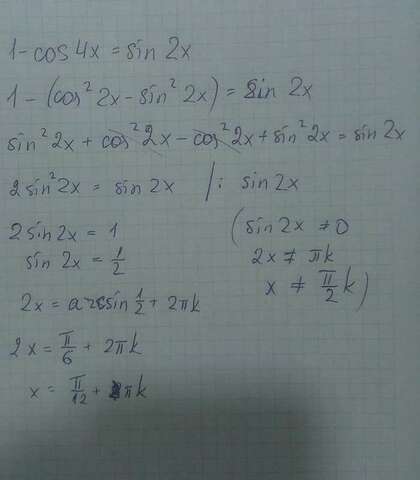 1 - cos 4x = sin 2x
1 - (cos² 2x - sin² 2x) = sin 2x
sin² 2x + cos² 2x - cos² 2x + sin² 2x = sin 2x
2 sin² 2x = sin 2x /: sin 2x
2 sin 2x = 1 (sin 2x ≠ 0
sin 2x = 1/2 2x ≠ πk
2x = arcsin 1/2 + 2πk x ≠ π/2 k)
2x = π/6 + 2πk
x = π/12 + πk